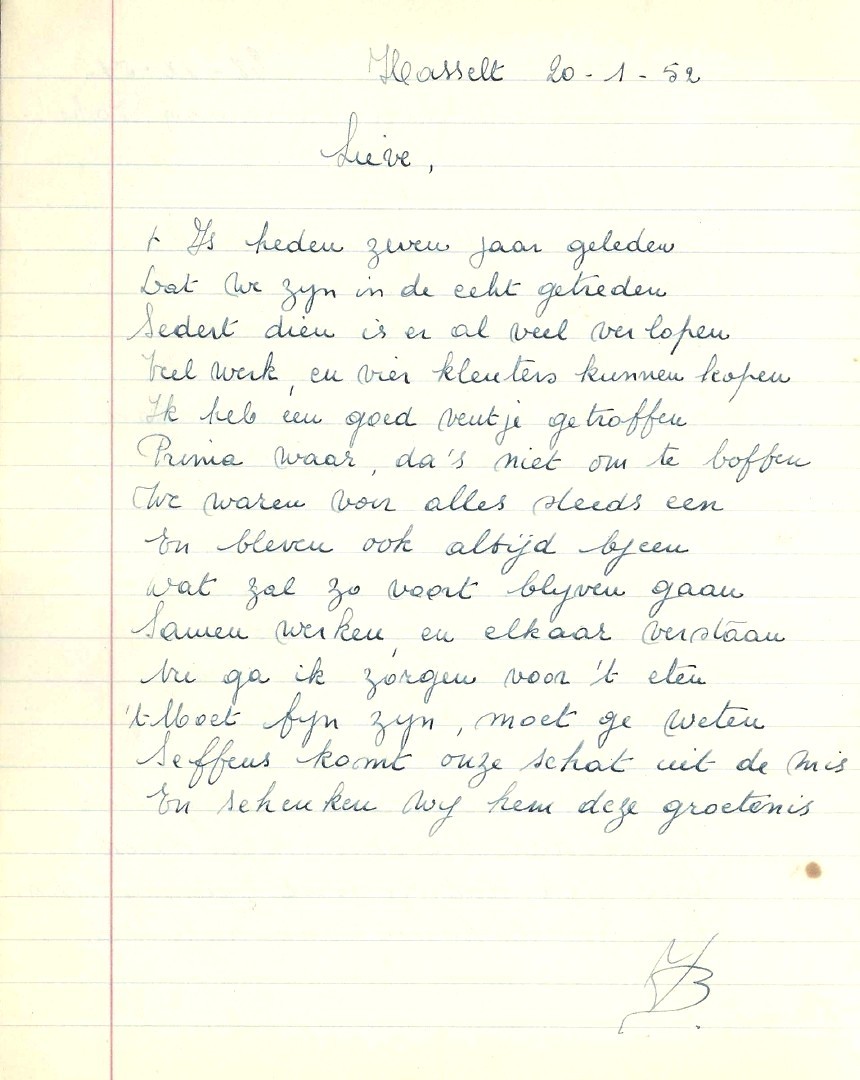 Hasselt 20-1-52
Lieve,
't Is heden zeven jaar geleden
Dat We zyn in de echt getreden
Sedert dien is er al veel verlopen
Veel werk, en vier kleuters kunnen kopen
Ik heb een goed ventje getroffen
Prima waar, da's niet om te boffen
We waren voor alles steeds een
En bleven ook altijd byeen
Wat zal zo voort blyven gaan
Samen werken, en elkaar verstaan
Nu ga ik zorgen voor 't eten
't Moet fyn zyn, moet ge weten
Seffens komt onze schat uit de mis
En schenken wy hem deze groetenis